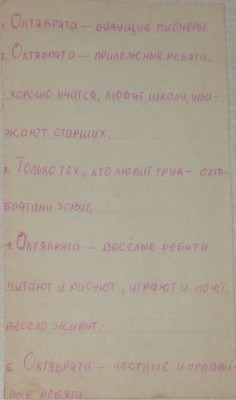 1. Октября­та — будущие пионеры.
2. Октябрята — прилежные ребята,
хорошо учатся, любят школу, ува-
жают старших.
3. Только тех, кто любит труд - октя-
брятами зовут.
4. Октябрята — весёлые ребята
читают и рисуют, играют и поют,
весело живут.
5. Октябрята — честные и правди-
вые ребята.